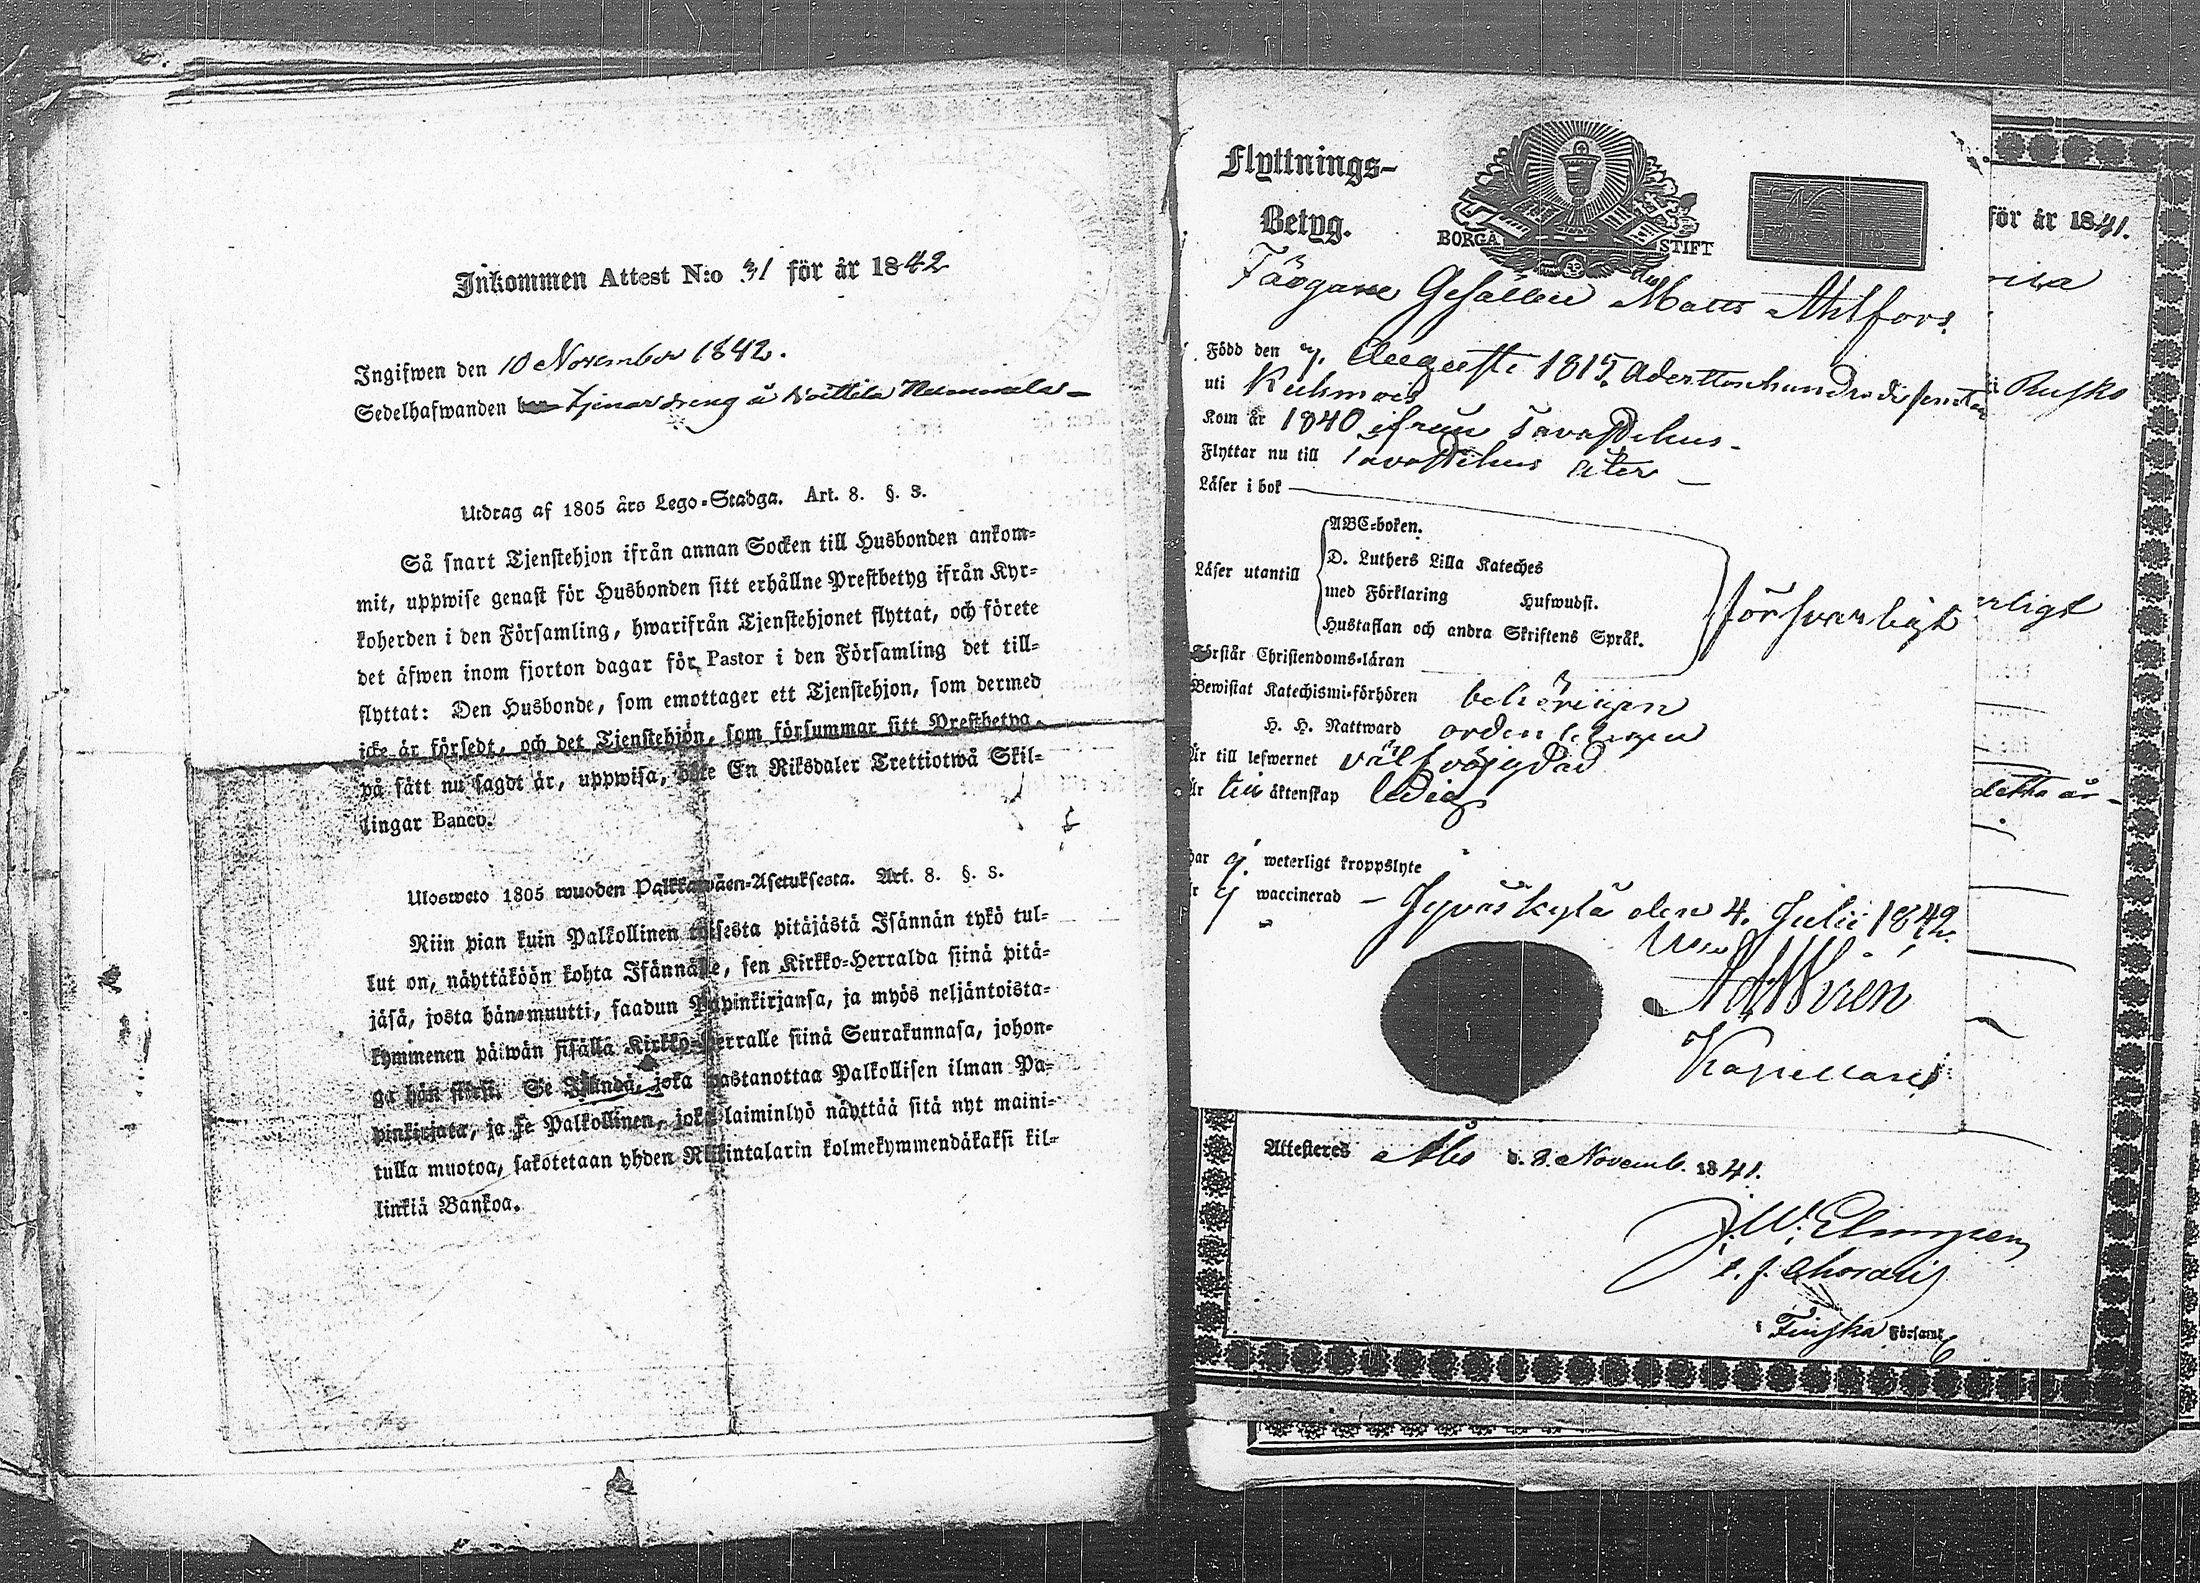 Inkommen Attest N:o 31 för år 1842
Ingifwen den 10 November 1842.
Sedelhafwanden tjenar dreng å
Utdrag af 1805 års Lego-Stadga. Art. 8. §. 3.
Så snart Tjenstehjon ifrån annan Socken till Husbonden ankom-
mit, uppwise genast för Husbonden sitt erhållne Prestbetyg ifrån Kyr-
koherden i den Församling, hwarifrån Tjenstehjonet flyttat, och förete
det äfwen inom fjorton dagar för Pastor i den Församling det till-
flyttat: Den Husbonde, som emottager ett Tjenstehjon, som dermed
icke är försedt, och det Tjenstehjon, som försummar sitt Prestbetyg,
på sätt nu sagdt är, uppwisa, böte En Riksdaler Trettiotwå Skil-
lingar Banco.
Ulosweto 1805 wuoden Palkkawäen-Asetuksesta. Art. 8. §. 3.
Niin pian kuin Palkollinen toisesta pitäjästä Isännän tykö tul-
lut on, näyttäköön kohta Isännälle, sen Kirkko-Herralda siinä pitä-
jäsä, josta hän muutti, saadun Papinkirjansa, ja myös neljäntoista-
kymmenen päiwän sisällä Kirkko-Herralle siinä Seurakunnasa, johon-
ga hän siirsi. Se Isändä, joka wastanottaa Palkollisen ilman Pa-
pinkirjata, ja se Palkollinen, joka laiminlyö näyttää sitä nyt maini-
tulla muotoa, sakotetaan yhden Riikintalarin kolmekymmendäkaksi kil-
linkiä Bankoa.
Flyttnings-
Betyg.
BORGÅ STIFT
N:o
FÖR ÅR 18
Färgare Gesällen Matts Ahlfors
Född den 7. Augusti 1815 Adertonhundrade femton
uti Kuhmois
Kom år 1840 ifrån Tavastehus
Flyttar nu till Tavastehus åter
Läser i bok
ABC-boken.
Läser utantill D. Luthers Lilla Kateches
med Förklaring Hufwudst.
Hustaflan och andra Skriftens Språk.
försvarligt
Förstår Christendoms-läran
Bewistat Katechismi-förhören behörigen
H. H. Nattward ordentligen
Är till lefwernet välfräjdad
Är till äktenskap ledig
har ej weterligt kroppslyte
Är ej waccinerad - Jyväskylä den 4. Julii 1842.
Ad Wirén
Kapellan
för år 1841.
Rusko
erligt
detta år
Attesteres Åbo d. 8. Novemb. 1841.
i Finska Församl